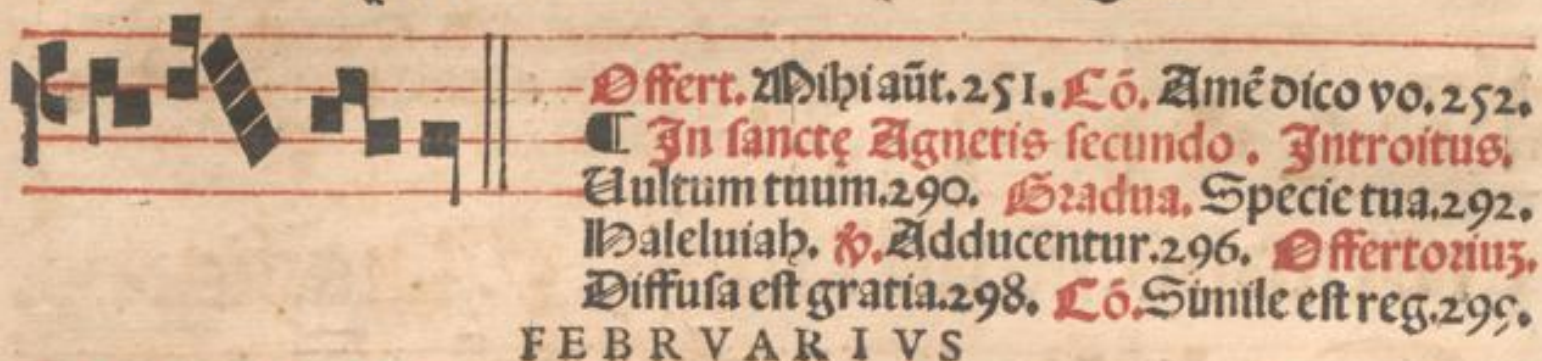 Offert. Mihi aūt. 251. Cō. Amē dico vo. 252.
¶ In sanctę Agnetis secundo. Introitus.
Uultum tuum. 290. Gradua. Specie tua. 292.
Haleluiah. ℣. Adducentur. 296. Offertoriuꝫ.
Diffusa est gratia. 298. Cō. Simile est reg. 299.
FEBRVARIVS